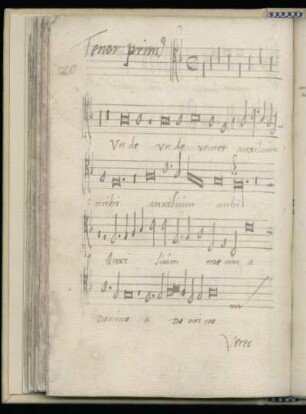 Tenor prim9
20
Vnde vnde veniet auxilium
mihi auxilium mihi
Auxi lium meum a
Domino a Do mi no